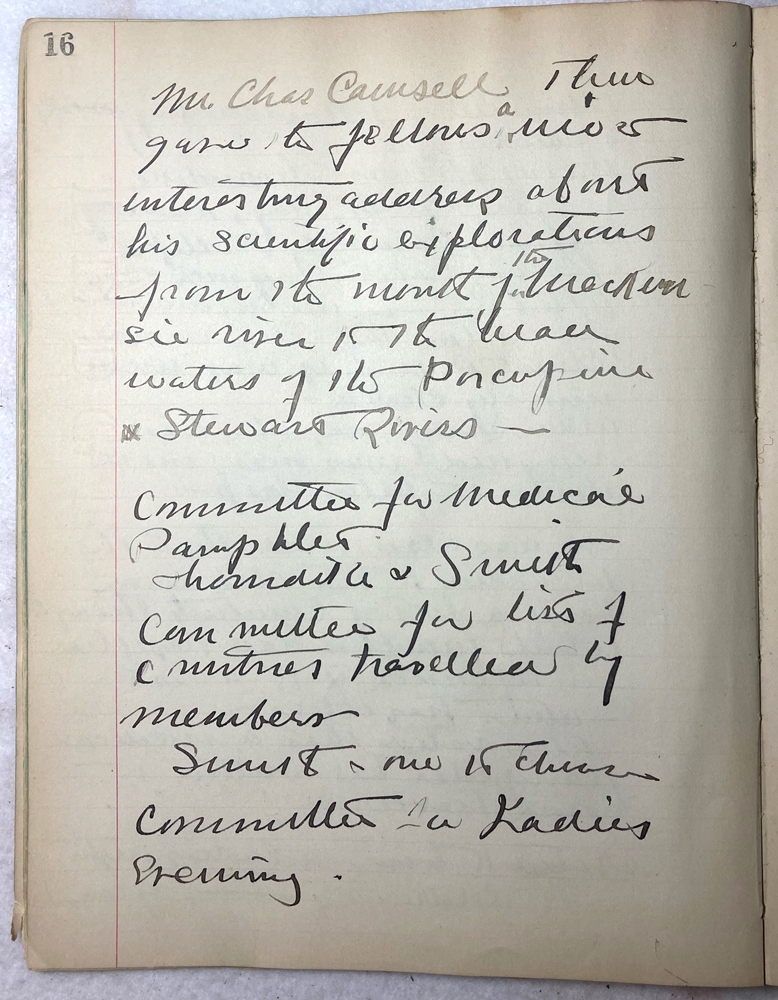 16
Mr. Chas Camsell Then
gave the fellows a most
interesting address about
his scientific explorations
from the mouth of the Macken
sie river to the head
waters of the Porcupine
& Stewart Rivers —
Committee for Medical
Pamphlet.
Thorndike & Smith
Committee for list of
countries travelled by
members
Smith & one to choose
Committee for Ladies
Evening.